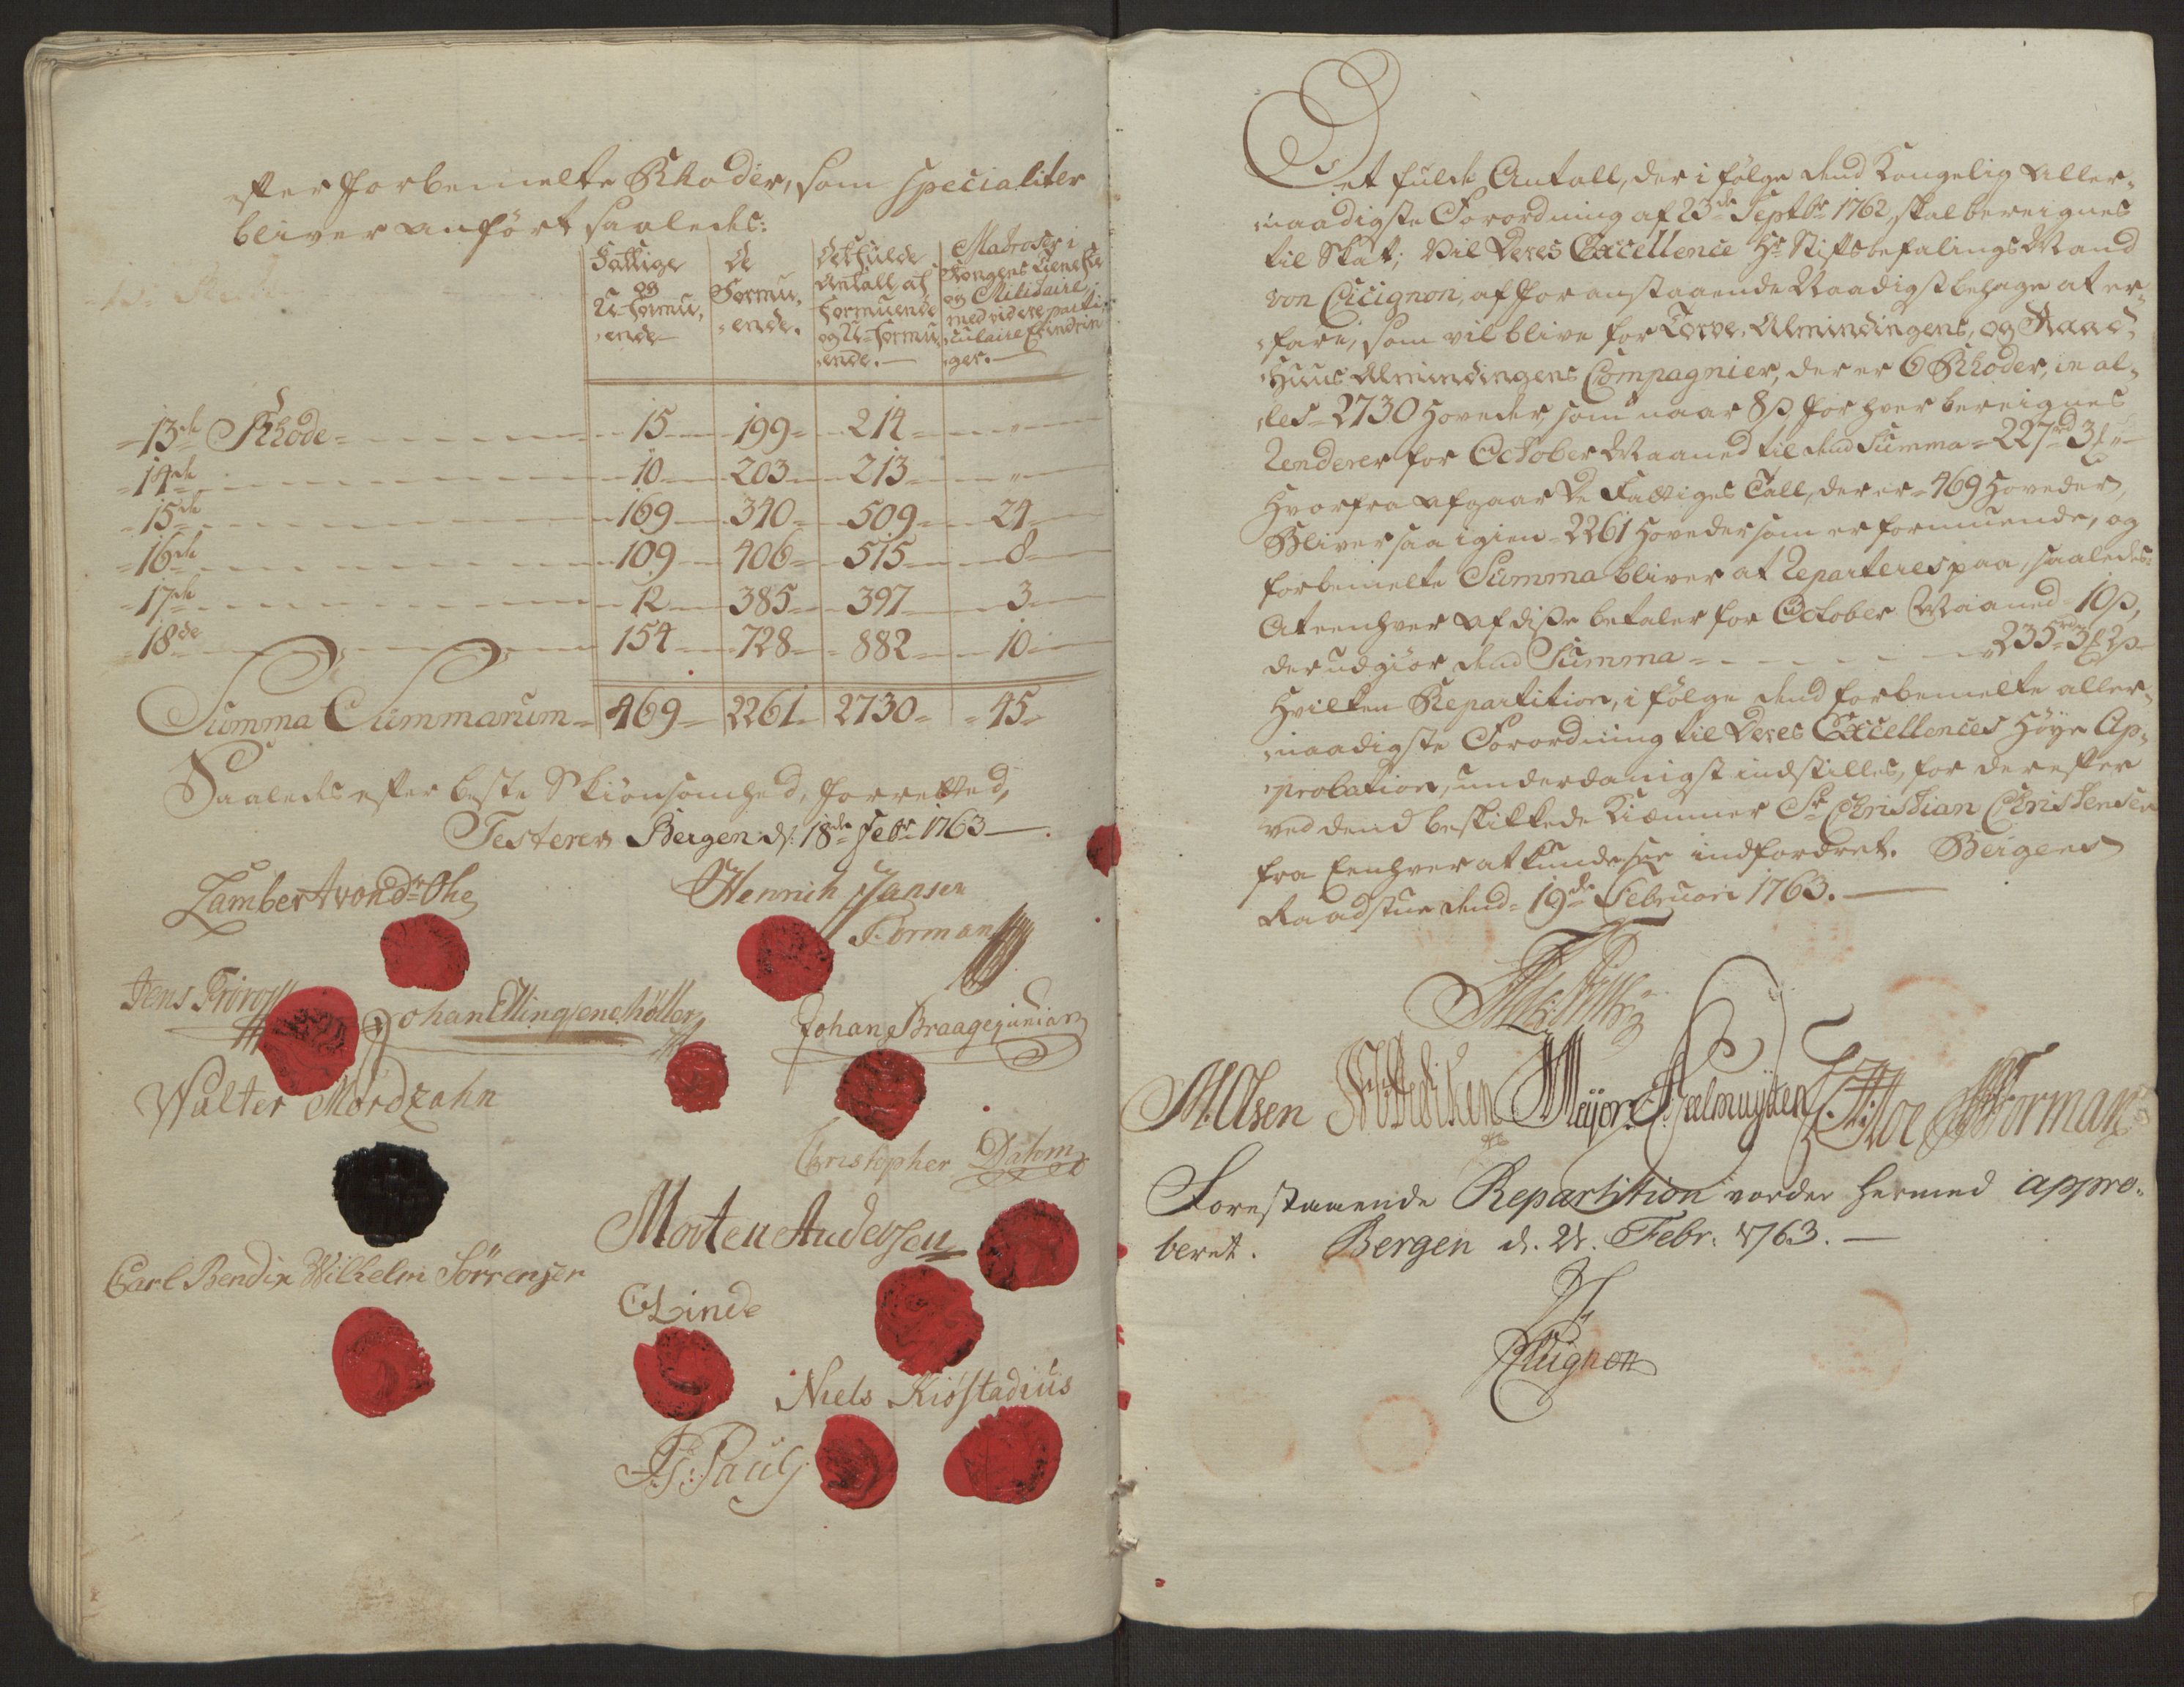 efter forbemelte Rhoder, som specialiter
bliver anført saaledes:
Fattige og U-formu,ende
De Formu,ende.
Det fulde Antall af formuende og U-formu,ende.
Madroser i Kongens Tieneste og Militaire, med videre particulaire Erindringer.
13de Rhode 15 199 214 "
14de 10 203 213 "
15de 169 340 509 24
16de 109 406 515 8
17de 12 385 397 3
18de 154 728 882 10
Summa Summarum 469 2261 2730 45
Saaledes efter beste Skiønsomhed, forretted,
Testerer Bergen d: 18de Febr 1763
Lambert von dr Ohe
Henrich Jansen
Forman
Jens
Johan Ellingsen Møller
Johan Braage junior
Walter Mordzahn
Christopher Dahm
Morten Andersen
Carl Bendix Wilhelm Sörrensen
C Linde
Niels Kiöstadius
Paul
Det fulde Antall, der i følge dend Kongelig Aller,
naadigste Forordning af 23de Septbr 1762, skal bereignes
til Skat; Vil Deres Excellence Hr Stiftsbefalings Mand
von Cicignon, af foranstaaende Naadigst behage at er,
fare, som vil blive for Torve, Almindingens, og Raad,
Huus Almindingens Compagnier, der er 6 Rhoder, in al,
les 2730 Hoveder, som naar 8ß for hver bereignes
Renderer for October Maaned til dend Summa 227rd 3 "
Hvorfra afgaar De Fattiges Tall, der er 469 Hoveder,
Bliver saa igien 2261 Hoveder som er formuende, og
forbemelte Summa bliver at Reparteres paa, saaledes:
At eenhver af disse betaler for October Maaned 10ß,
der udgiør dend Summa 235rd 3 2ß
Hvilken Repartition, i følge dend forbemelte aller,
naadigste Forordning til Deres Excellences Høye Ap,
probation, underdanigst indstilles, for derefter
ved dend beskikkede Kiæmner Sr Christian Christensen
fra Eenhver at kunde see indfordret. Bergens
Raadstue dend 19de Februari 1763.
M. Olsen Meyer Geelmuyden Forman
Forestaaende Repartition vorder hermed appro,
beret. Bergen d. 21. Febr. 1763.
Cicignon